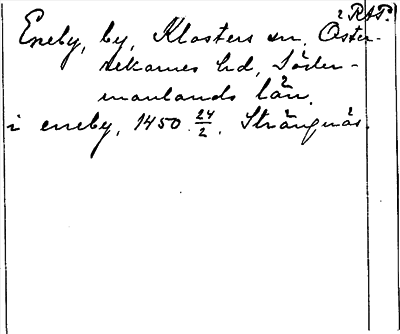 2 RAP.
Eneby, by, Klosters sn, Öster-
rekarnes hd, Söder-
manlands län.
i eneby, 1450 24/2. Strängnäs.